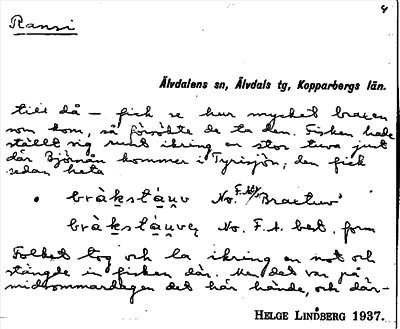 4
Ransi
Älvdalens sn, Älvdals tg, Kopparbergs län.
till då – fick se hur mycket braxen
som kom, så försökte de ta den. Fisken hade
ställt sig runt ikring en stor tuva just
där Björnån kommer i Tyrisjön, den fick
sedan heta
bràkstáu̯v No. F. "Braxtuv"
bràkstáu̯veṇ No. F. 1. best. form
Folket tog och la ikring en not och
stängde in fisken där. Men det var på
midsommardagen det här hände, och där-
HELGE LINDBERG 1937.